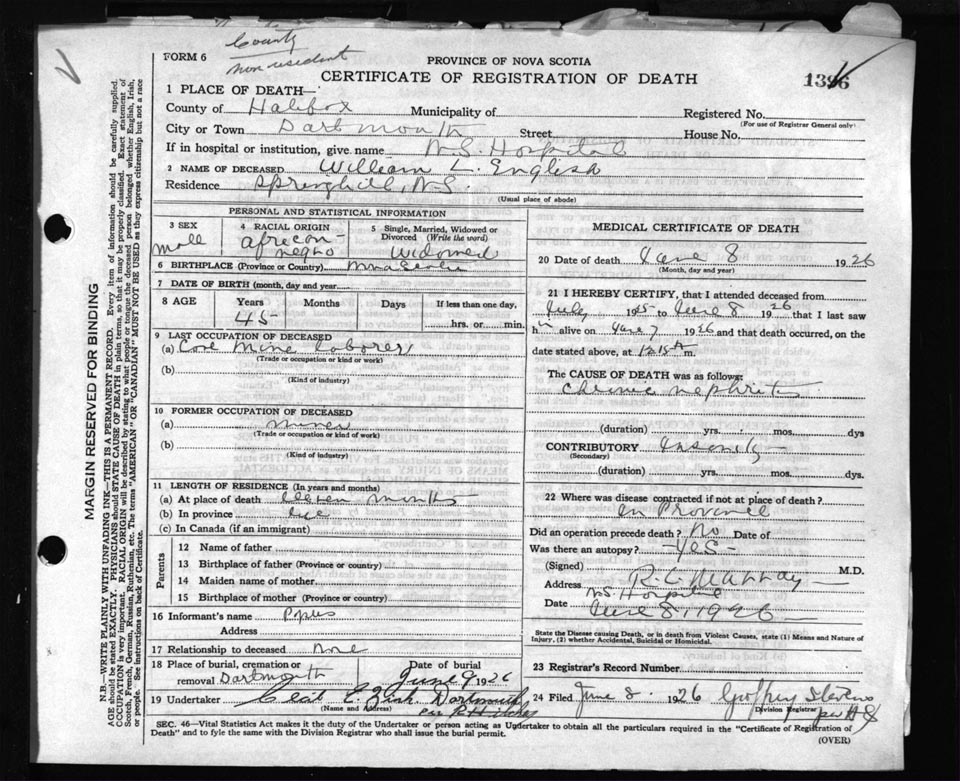 County
non resident
FORM 6
PROVINCE OF NOVA SCOTIA
CERTIFICATE OF REGISTRATION OF DEATH
1396
1 PLACE OF DEATH—
County of Halifax Municipality of Registered No.
(For use of Registrar General only)
City or Town Dartmouth Street House No.
If in hospital or institution, give name N.S. Hospital
2 NAME OF DECEASED William L. English
Residence Springhill, N.S.
(Usual place of abode)
PERSONAL AND STATISTICAL INFORMATION
3 SEX
Male
4 RACIAL ORIGIN
African-
negro
5 Single, Married, Widowed or
Divorced (Write the word)
Widowed
6 BIRTHPLACE (Province or Country)
7 DATE OF BIRTH (month, day and year)
8 AGE Years Months Days If less than one day,
45 hrs. or min.
9 LAST OCCUPATION OF DECEASED
(a) Coal Mine Laborer
(Trade or occupation or kind of work)
(b)
(Kind of industry)
10 FORMER OCCUPATION OF DECEASED
(a)
(Trade or occupation or kind of work)
(b)
(Kind of industry)
11 LENGTH OF RESIDENCE (In years and months)
(a) At place of death Eleven months
(b) In province life
(c) In Canada (if an immigrant)
Parents
12 Name of father
13 Birthplace of father (Province or country)
14 Maiden name of mother
15 Birthplace of mother (Province or country)
16 Informant's name
Address
17 Relationship to deceased None
18 Place of burial, cremation or Date of burial
removal Dartmouth June 9 1926
19 Undertaker Dartmouth
(Name and Address)
MEDICAL CERTIFICATE OF DEATH
20 Date of death June 8 1926
(Month, day and year)
21 I HEREBY CERTIFY, that I attended deceased from
July 1925 to June 8 1926 that I last saw
him alive on June 7 1926 and that death occurred, on
date stated above, at 12.15 A m.
The CAUSE OF DEATH was as follows:
Chronic nephritis
(duration) yrs. mos. dys
CONTRIBUTORY Insanity
(Secondary)
(duration) yrs. mos. dys.
22 Where was disease contracted if not at place of death?
In Province
Did an operation precede death? No Date of
Was there an autopsy? -Yes-
(Signed) R.C. Murray M.D.
Address N.S. Hospital
Date June 8, 1926
State the Disease causing Death, or in death from Violent Causes, state (1) Means and Nature of
Injury, (2) whether Accidental, Suicidal or Homicidal.
23 Registrar's Record Number
24 Filed June 8. 1926 Geoffrey Stevens
Division Registrar
SEC. 46—Vital Statistics Act makes it the duty of the Undertaker or person acting as Undertaker to obtain all the particulars required in the "Certificate of Registration of
Death" and to fyle the same with the Division Registrar who shall issue the burial permit.
(OVER)
MARGIN RESERVED FOR BINDING
N.B.—WRITE PLAINLY WITH UNFADING INK—THIS IS A PERMANENT RECORD. Every item of information should be carefully supplied.
AGE should be stated EXACTLY. PHYSICIANS should STATE CAUSE OF DEATH in plain terms, so that it may be properly classified. Exact statement of
OCCUPATION is very important. RACIAL ORIGIN will be described by stating to what people or tongue the deceased person belonged whether English, Irish,
Scotch, French, German, Russian, Ruthenian, etc. The terms "AMERICAN" OR "CANADIAN" MUST NOT BE USED as they express citizenship but not a race
or people. See instructions on back of Certificate.